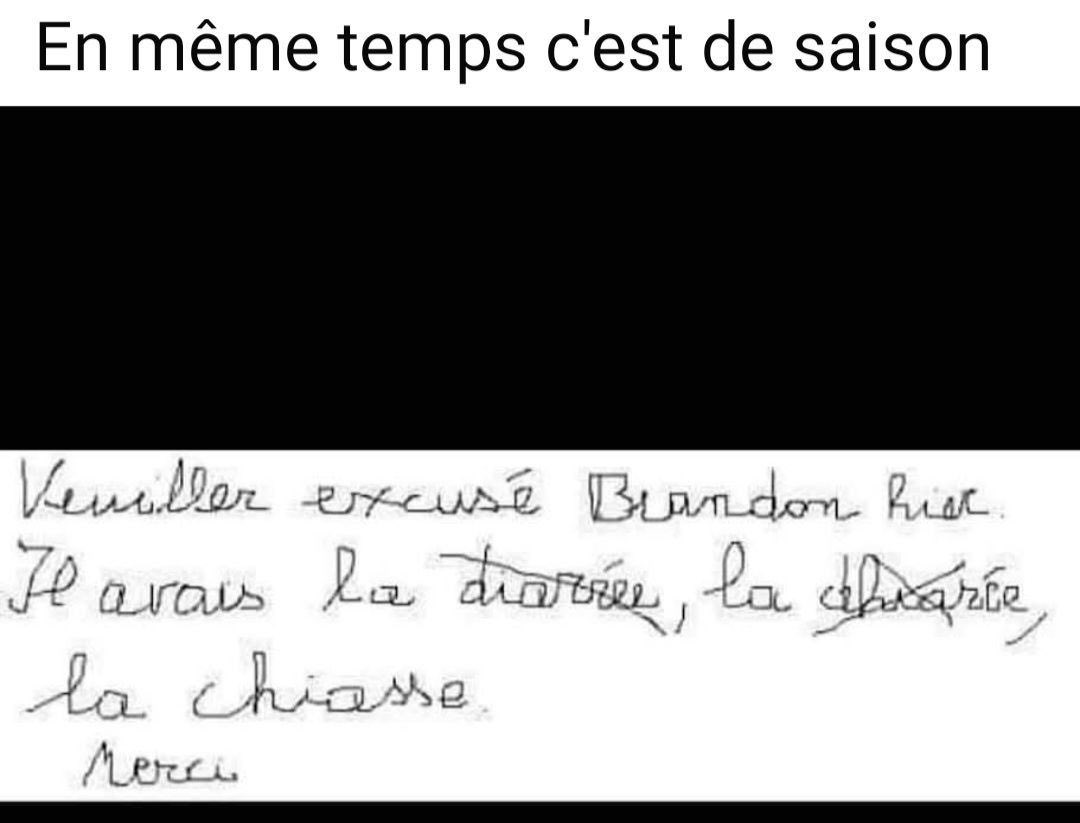 En même temps c'est de saison
Veuiller excusé Brandon hier.
Il avais la diarrée, la dhiarée,
la chiasse.
Merci